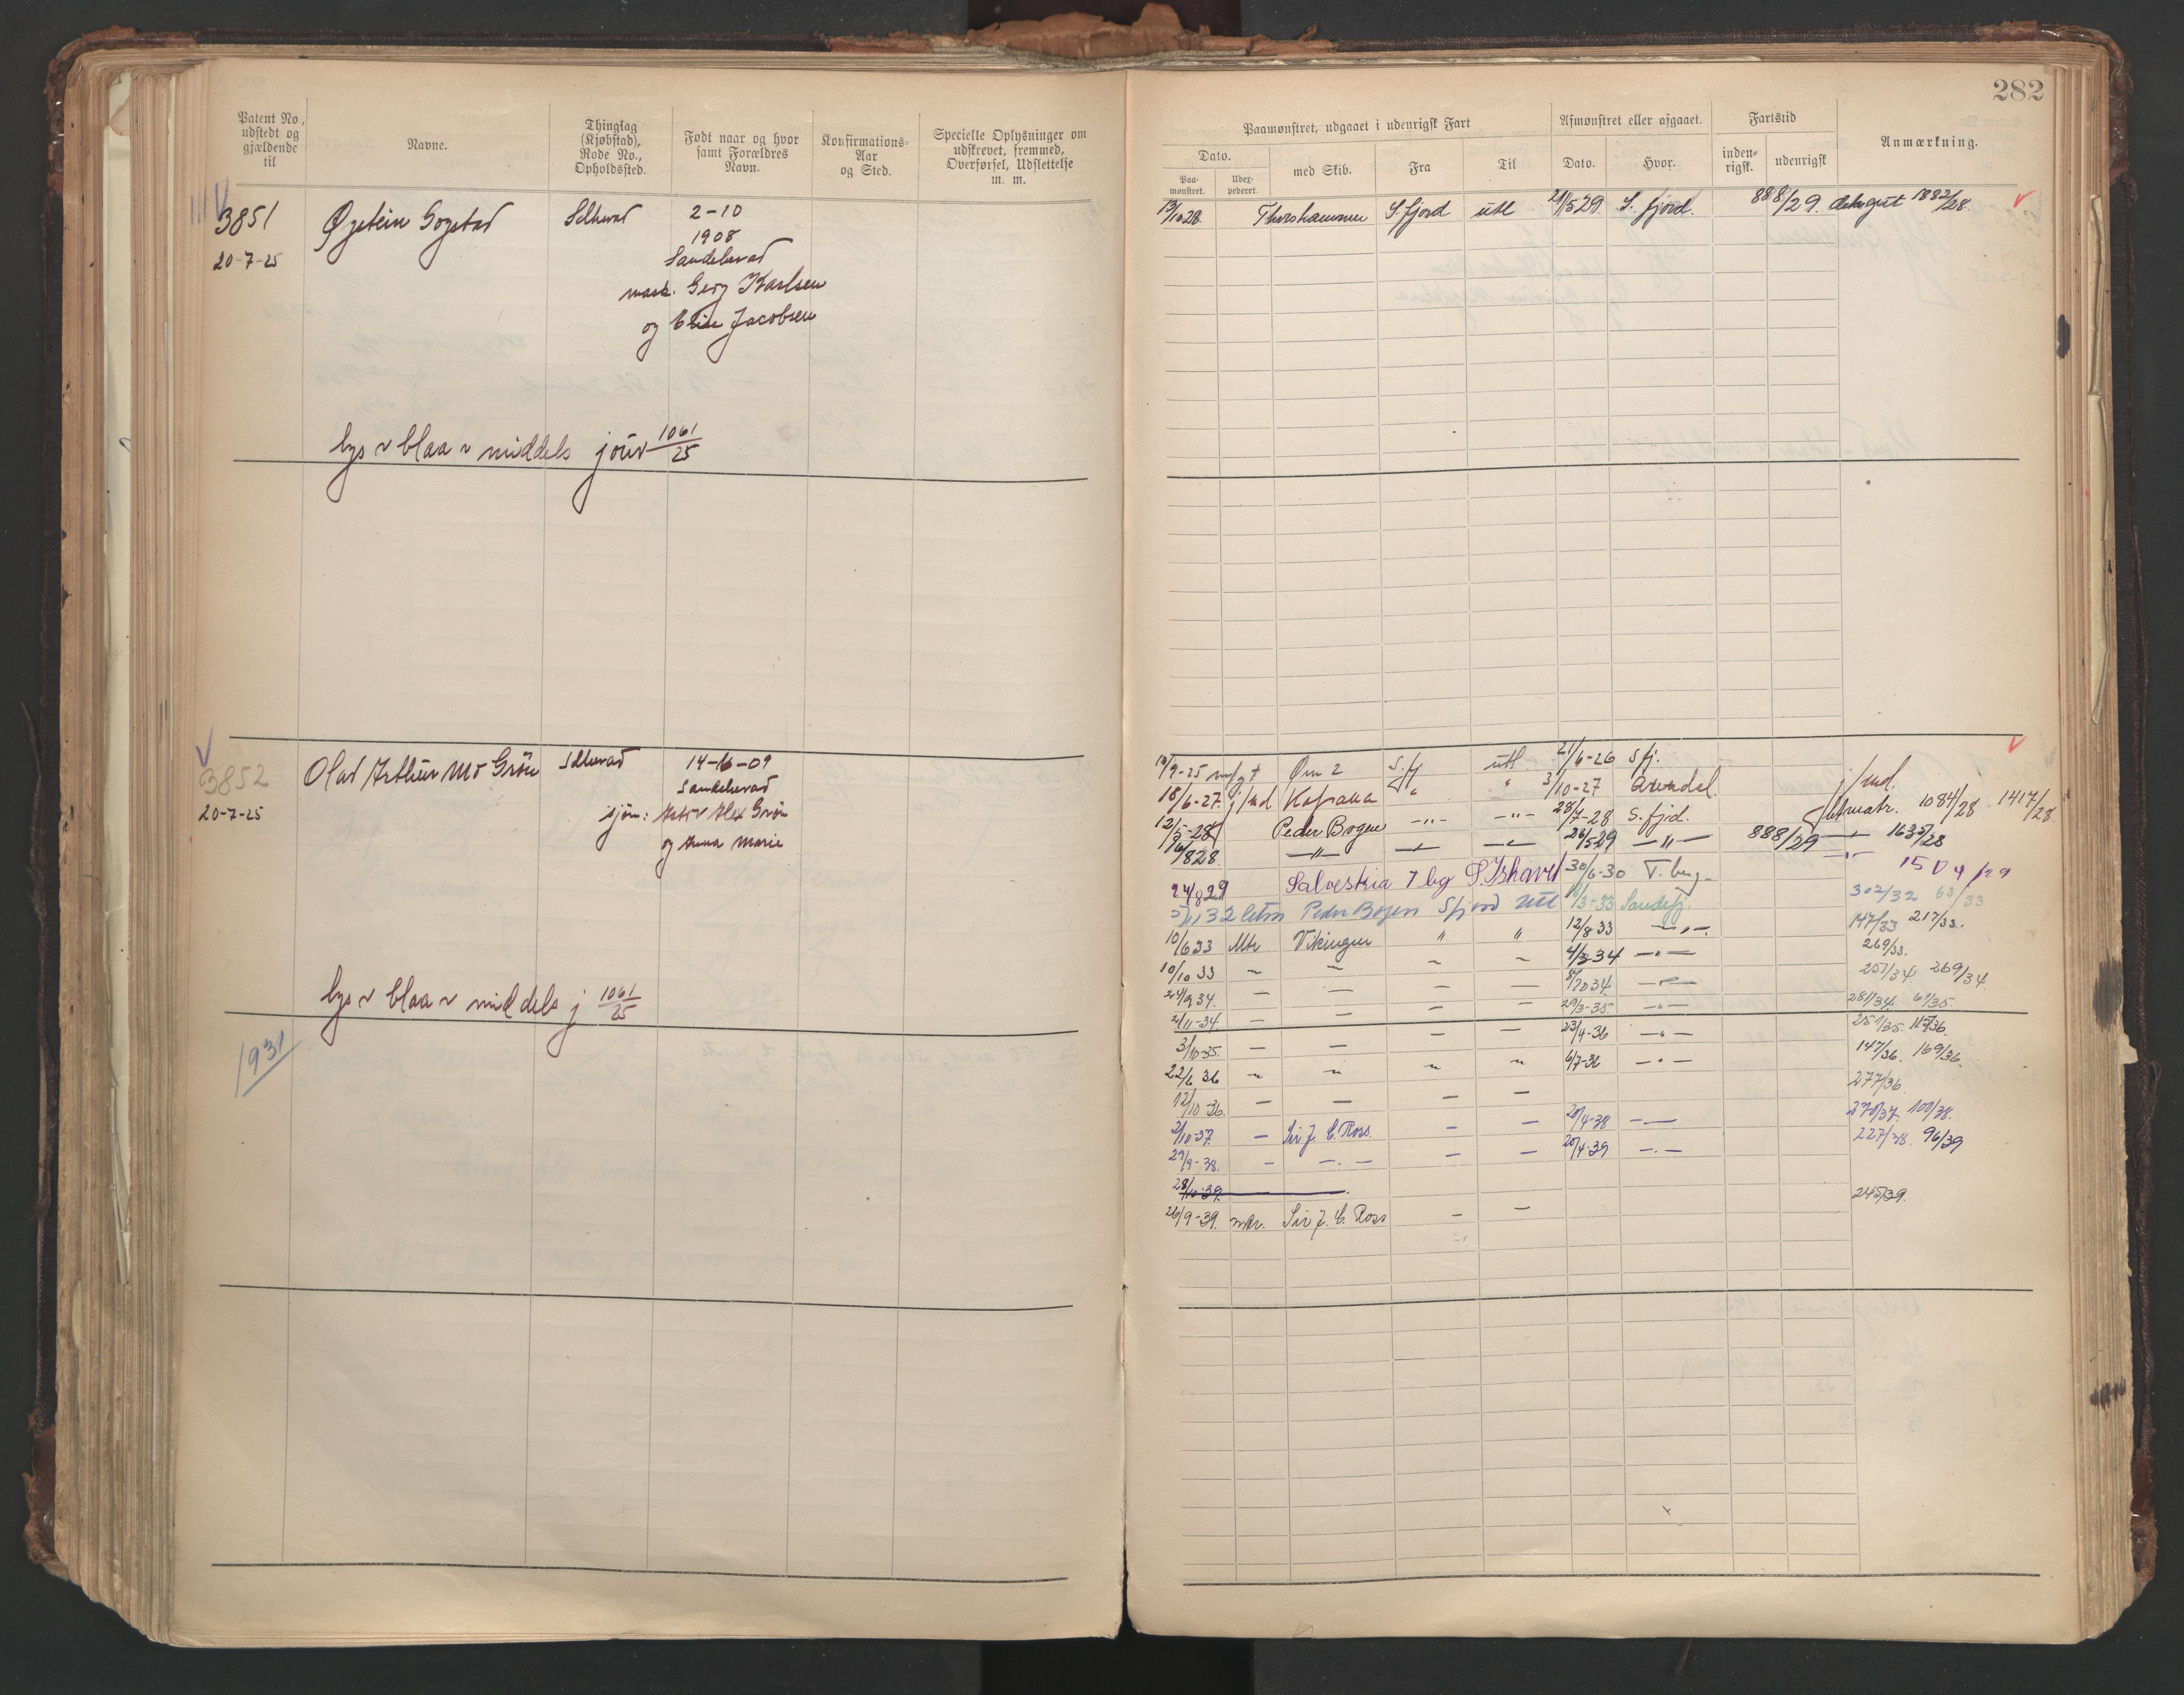 282
Patent No. udstedt og gjældende til
Navne.
Thinglag (Kjøbstad), Rode No., Opholdssted.
Født naar og hvor samt Forældres Navn.
Konfirmations-Aar og Sted.
Specielle Oplysninger om udskrevet, fremmed, Overførsel, Udslettelse m. m.
Paamønstret, udgaaet i udenrigsk Fart
Afmønstret eller afgaaet.
Fartstid
Anmærkning.
Dato.
med Skib.
Fra
Til
Dato.
Hvor.
inden-rigsk.
udenrigsk
Paa-monstret.
Udex-pederet.
3851 Øystein Gogstad
2-10
20-7-25
1908
Sandeherad
mask. Georg Karlsen
og Elise Jacobsen
lys v blaa v middels jour 1061/25
Thorshammer S.fjord utl 21/5 29 S. fjord. 888/29. deksgut 1882/28.
3852 Olaf Arthur Mo Grön
14-6-09
20-7-25
Sandeherad
sjöm: Anton Alex Grön
og Anna Marie
lys v blaa v middels j 1061/25
1931
/9-25 m/gt Örn 2 S.fj utl 21/6-26 S fj.
18/6-27. j/md Kosmos " " 3/10-27 Arendal. j/md.
12/5-28 Peder Bogen -"- -"- 28/7-28 S. fjd. 1084/28 1417/28
16/8 28. -"- 26/5 29 -"- 888/29 1635/28
24/8 29 Salvestria T bg S.Ishavet 30/6-30 T. berg. 1504/29
32 Peder Bogen Sfjord utl /3-33 Sandefj. 302/32 63/33
10/6 33 Mtr Vikingen " " 12/8 33 -"-. 147/33 217/33.
10/10 33 ~ ~ ~ ~ 4/3-34 -"- 269/33.
24/9 34. - - - - 8/10 34. 257/34 269/34.
2/11-34. - - - - 29/3-35 -"- 281/34. 61/35
3/10-35. - - - - 23/4-36 -"- 251/35. 115/36.
22/6 36 " " " " 6/7-36 -"- 147/36. 169/36.
12/10-36. - - - - 277/36.
2/10-37. - Sir J. C. Ross. - - 20/4-38 270/37. 100/38.
29/9-38. - -.- - - 20/4-39 -.- 227/38. 96/39
28/10-39.
26/9-39. mtr. Sir J. C. Ross - - 245/39.